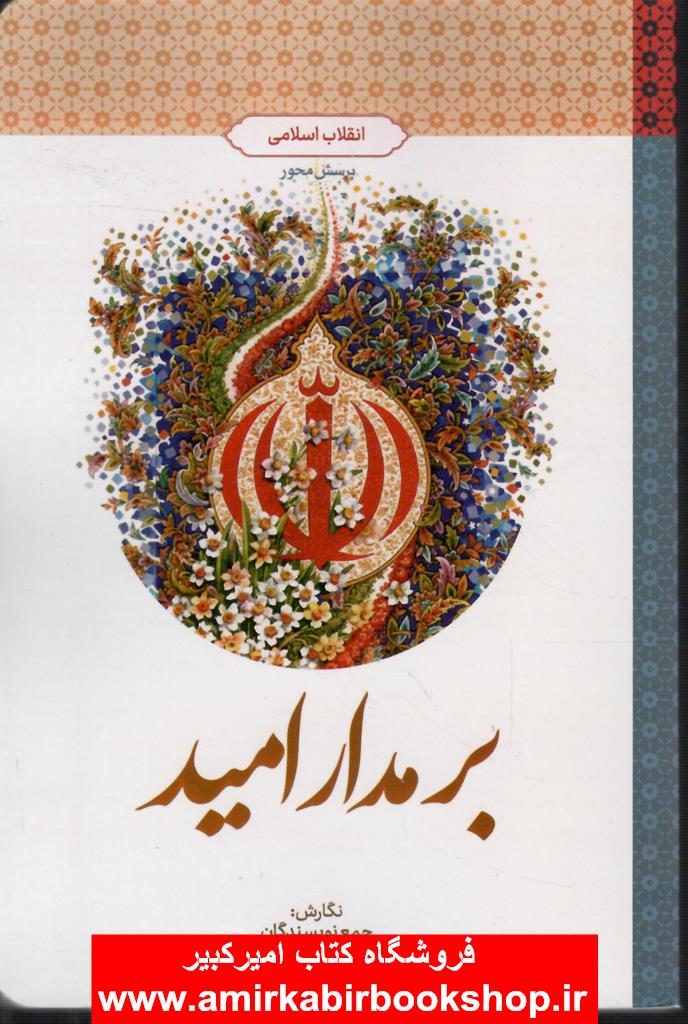 انقلاب اسلامی
پرسش محور
بر مدار امید
نگارش:
جمع نویسندگان
فروشگاه کتاب امیرکبیر
www.amirkabirbookshop.ir